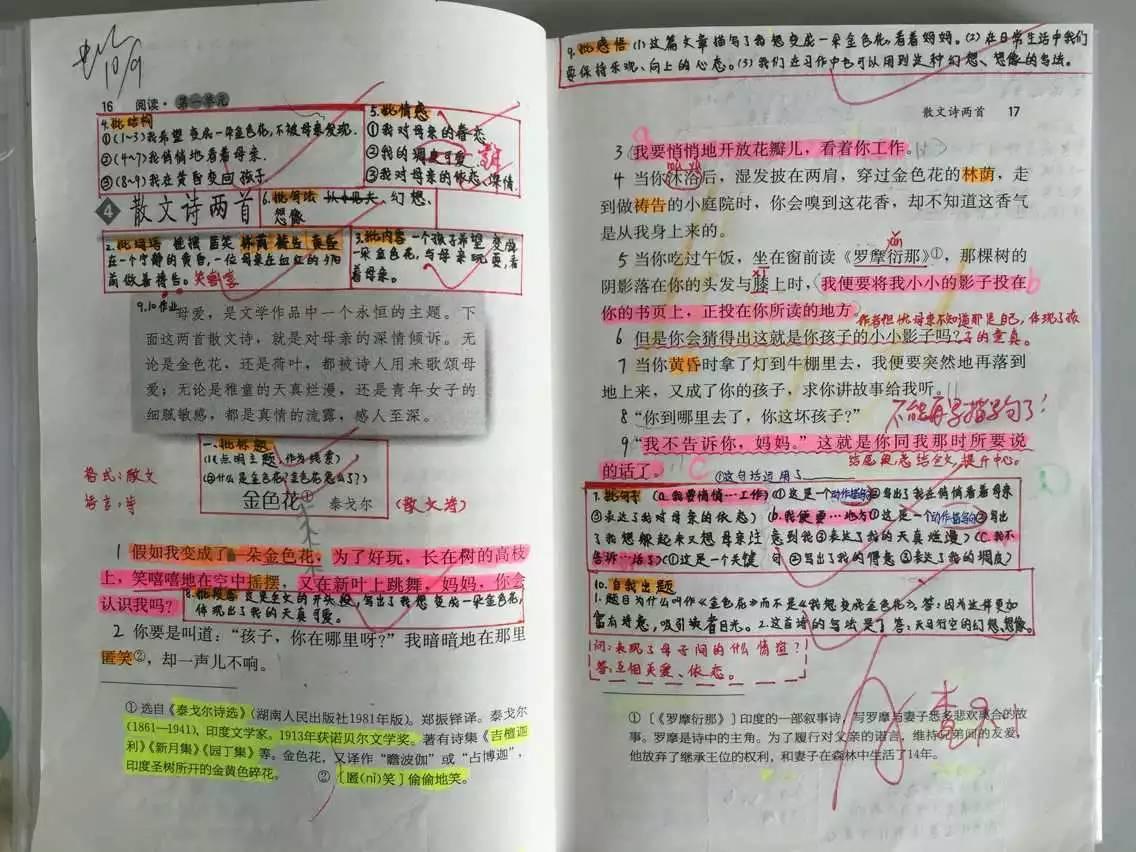 10/9
16 阅读·第一单元
4.批结构
①(1~3)我希望变成一朵金色花,不被母亲发现.
②(4~7)我悄悄地看着母亲.
③(8~9)我在黄昏变回孩子
5.批情感
①我对母亲的眷恋
②我的调皮可爱
③我对母亲的依恋、深情.
4 散文诗两首
6.批写法 幻想、
想像
2.批词语 匿笑 林荫 祷告 黄昏
在一个宁静的黄昏,一位母亲在血红的夕阳
前做着祷告。笑嘻嘻
3.批内容 一个孩子希望变成
一朵金色花,与母亲玩耍,看
着母亲。
9.10作业
母爱，是文学作品中一个永恒的主题。下
面这两首散文诗，就是对母亲的深情倾诉。无
论是金色花，还是荷叶，都被诗人用来歌颂母
爱；无论是稚童的天真烂漫，还是青年女子的
细腻敏感，都是真情的流露，感人至深。
一、批标题
(1)点明主题,作为线索)
(2)什么是金色花?金色花怎么了?)
格式:散文
语言:诗
金色花① 泰戈尔 (散文诗)
1 假如我变成了一朵金色花，为了好玩，长在树的高枝
上，笑嘻嘻地在空中摇摆，又在新叶上跳舞，妈妈，你会
认识我吗？
8.批段落 这是全文的开头段,写出了我想变成一朵金色花,
体现出了我的天真可爱.
2 你要是叫道：“孩子，你在哪里呀？”我暗暗地在那里
匿笑②，却一声儿不响。
① 选自《泰戈尔诗选》(湖南人民出版社1981年版)。郑振铎译。泰戈尔
(1861—1941)，印度文学家。1913年获诺贝尔文学奖。著有诗集《吉檀迦
利》《新月集》《园丁集》等。金色花，又译作“瞻波伽”或“占博迦”，
印度圣树所开的金黄色碎花。 ②〔匿(nì)笑〕偷偷地笑。
9.批感悟 (1)这篇文章描写了我想变成一朵金色花,看着妈妈。(2)在日常生活中我们
要保持乐观、向上的心态。(3)我们在习作中也可以用到这种幻想、想像的写法。
散文诗两首 17
a
3 我要悄悄地开放花瓣儿，看着你工作。
mù yù
4 当你沐浴后，湿发披在两肩，穿过金色花的林荫，走
到做祷告的小庭院时，你会嗅到这花香，却不知道这香气
是从我身上来的。
yǎn
5 当你吃过午饭，坐在窗前读《罗摩衍那》①，那棵树的
xī
阴影落在你的头发与膝上时，我便要将我小小的影子投在
你的书页上，正投在你所读的地方。
b
作者担忧母亲不知道那是自己,体现了孩
6 但是你会猜得出这就是你孩子的小小影子吗？
子的童真。
7 当你黄昏时拿了灯到牛棚里去，我便要突然地再落到
地上来，又成了你的孩子，求你讲故事给我听。
8 “你到哪里去了，你这坏孩子？”
不能再写描写句了!
9 “我不告诉你，妈妈。”这就是你同我那时所要说
的话了。
c
结尾段总结全文,提升中心。
①这句话运用了
7.批句子 (a.我要悄悄…工作)①这是一个动作描写句②写出了我在悄悄看着母亲
③表达了我对母亲的依恋) (b.我便要…地方)①这是一个动作描写句②写出
了我想躲起来又想母亲注意到我③表达了我的天真烂漫) (c.我不
告诉…话了)(①这是一个关键句②写出了我的得意③表达了我的调皮)
10.自我出题
1.题目为什么叫作《金色花》而不是《我想变成金色花》。答:因为这样更加
富有诗意,吸引读者目光。2.这首诗的写法是?答:天马行空的幻想、想像.
问:表现了母子间的什么情谊?
答:互相关爱、依恋。
查
① [《罗摩衍那》] 印度的一部叙事诗，写罗摩与妻子悉多悲欢离合的故
事。罗摩是诗中的主角。为了履行对父亲的诺言，维持兄弟间的友爱，
他放弃了继承王位的权利，和妻子在森林中生活了14年。